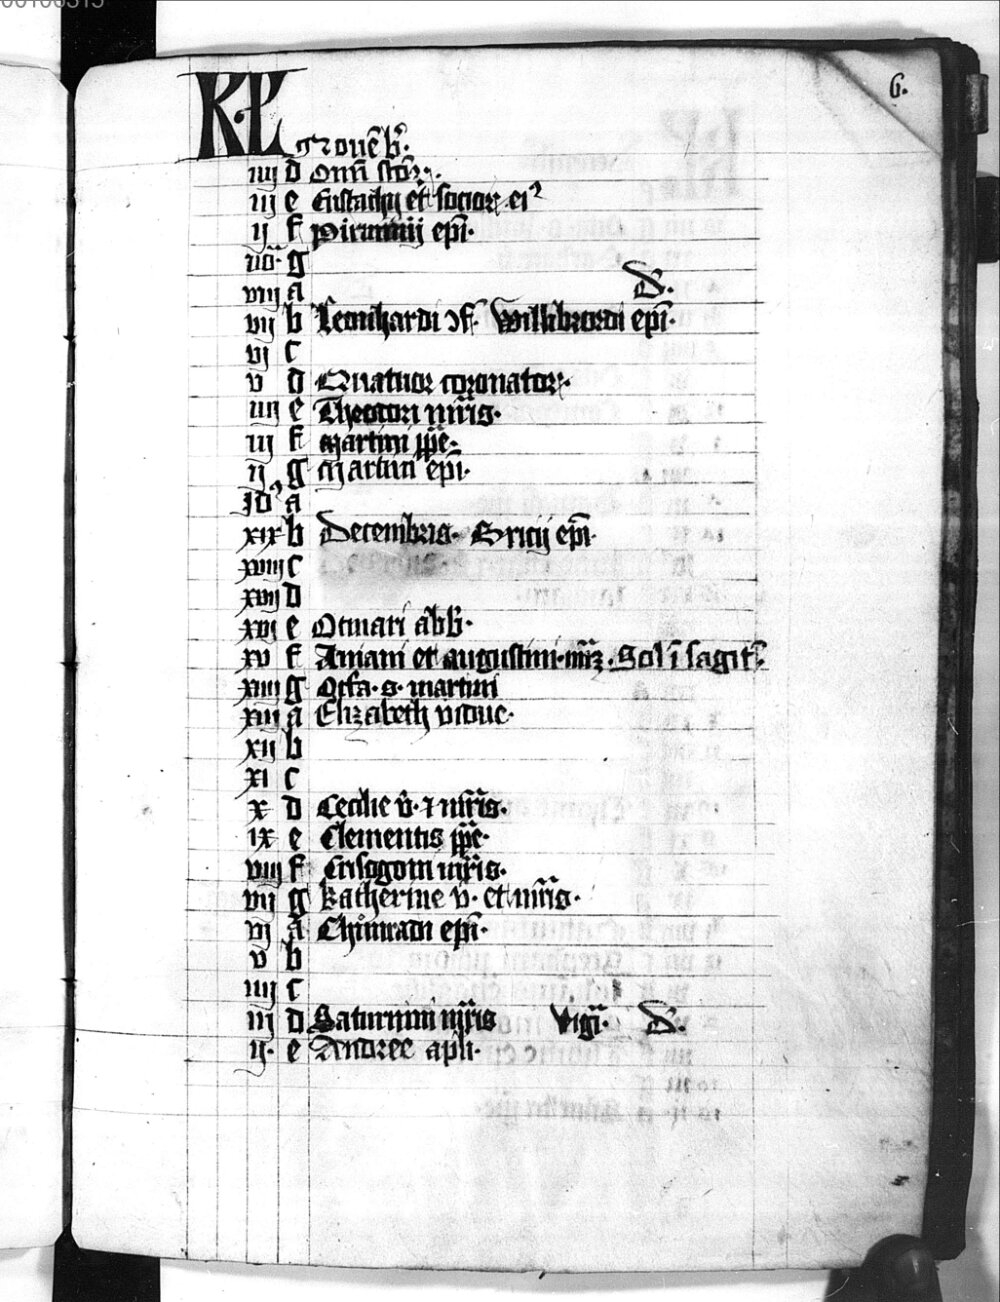 6.
KL
Nouēbꝰ.
iiij d Om̄ scōꝝ.
iij e Eustachij et socioꝝ eiꝰ
ij f Pirminij ep̄i.
no. g
viij a D.
vij b Leonhardi ↄf. Willibrordi ep̄i.
vj c
v d Quatuor coronatoꝝ.
iiij e Theodori mr̄is.
iij f Martini pp̄e.
ij g Martini ep̄i.
Idꝰ a
xix b Decembris. Bricij ep̄i.
xviij c
xvij d
xvj e Otmari abb̄.
xv f Aniani et augustini. mr̄ꝝ. Sol ī sagit̄.
xiiij g Octa. s. martini
xiij a Elizabeth vidue.
xij b
xi c
x d Cecilie v̄. ⁊ mr̄is.
ix e Clementis pp̄e.
viij f Crisogoni mr̄is.
vij g Katherine v̄. et mr̄is.
vj a Chůnradi ep̄i.
v b
iiij c
iij d Saturnini mr̄is Vigī. D.
ij. e Andree apl̄i.